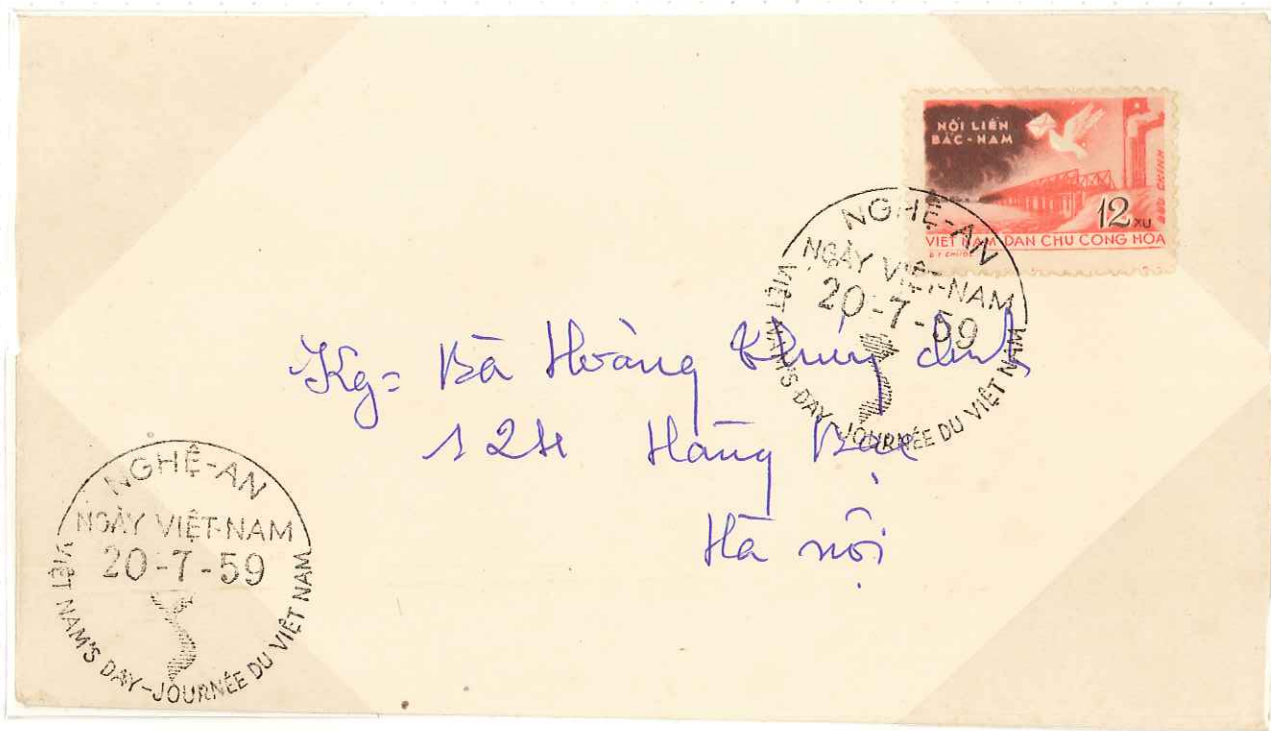 NỐI LIỀN
BẮC-NAM
BƯU CHÍNH
12 XU
VIỆT NAM DÂN CHỦ CỘNG HÒA
NGHỆ-AN
NGÀY VIỆT-NAM
20-7-59
VIỆT NAM'S DAY-JOURNÉE DU VIỆT NAM
Kg= Bà Hoàng
Hàng Bạc
Hà nội
NGHỆ-AN
NGÀY VIỆT-NAM
20-7-59
VIỆT NAM'S DAY-JOURNÉE DU VIỆT NAM